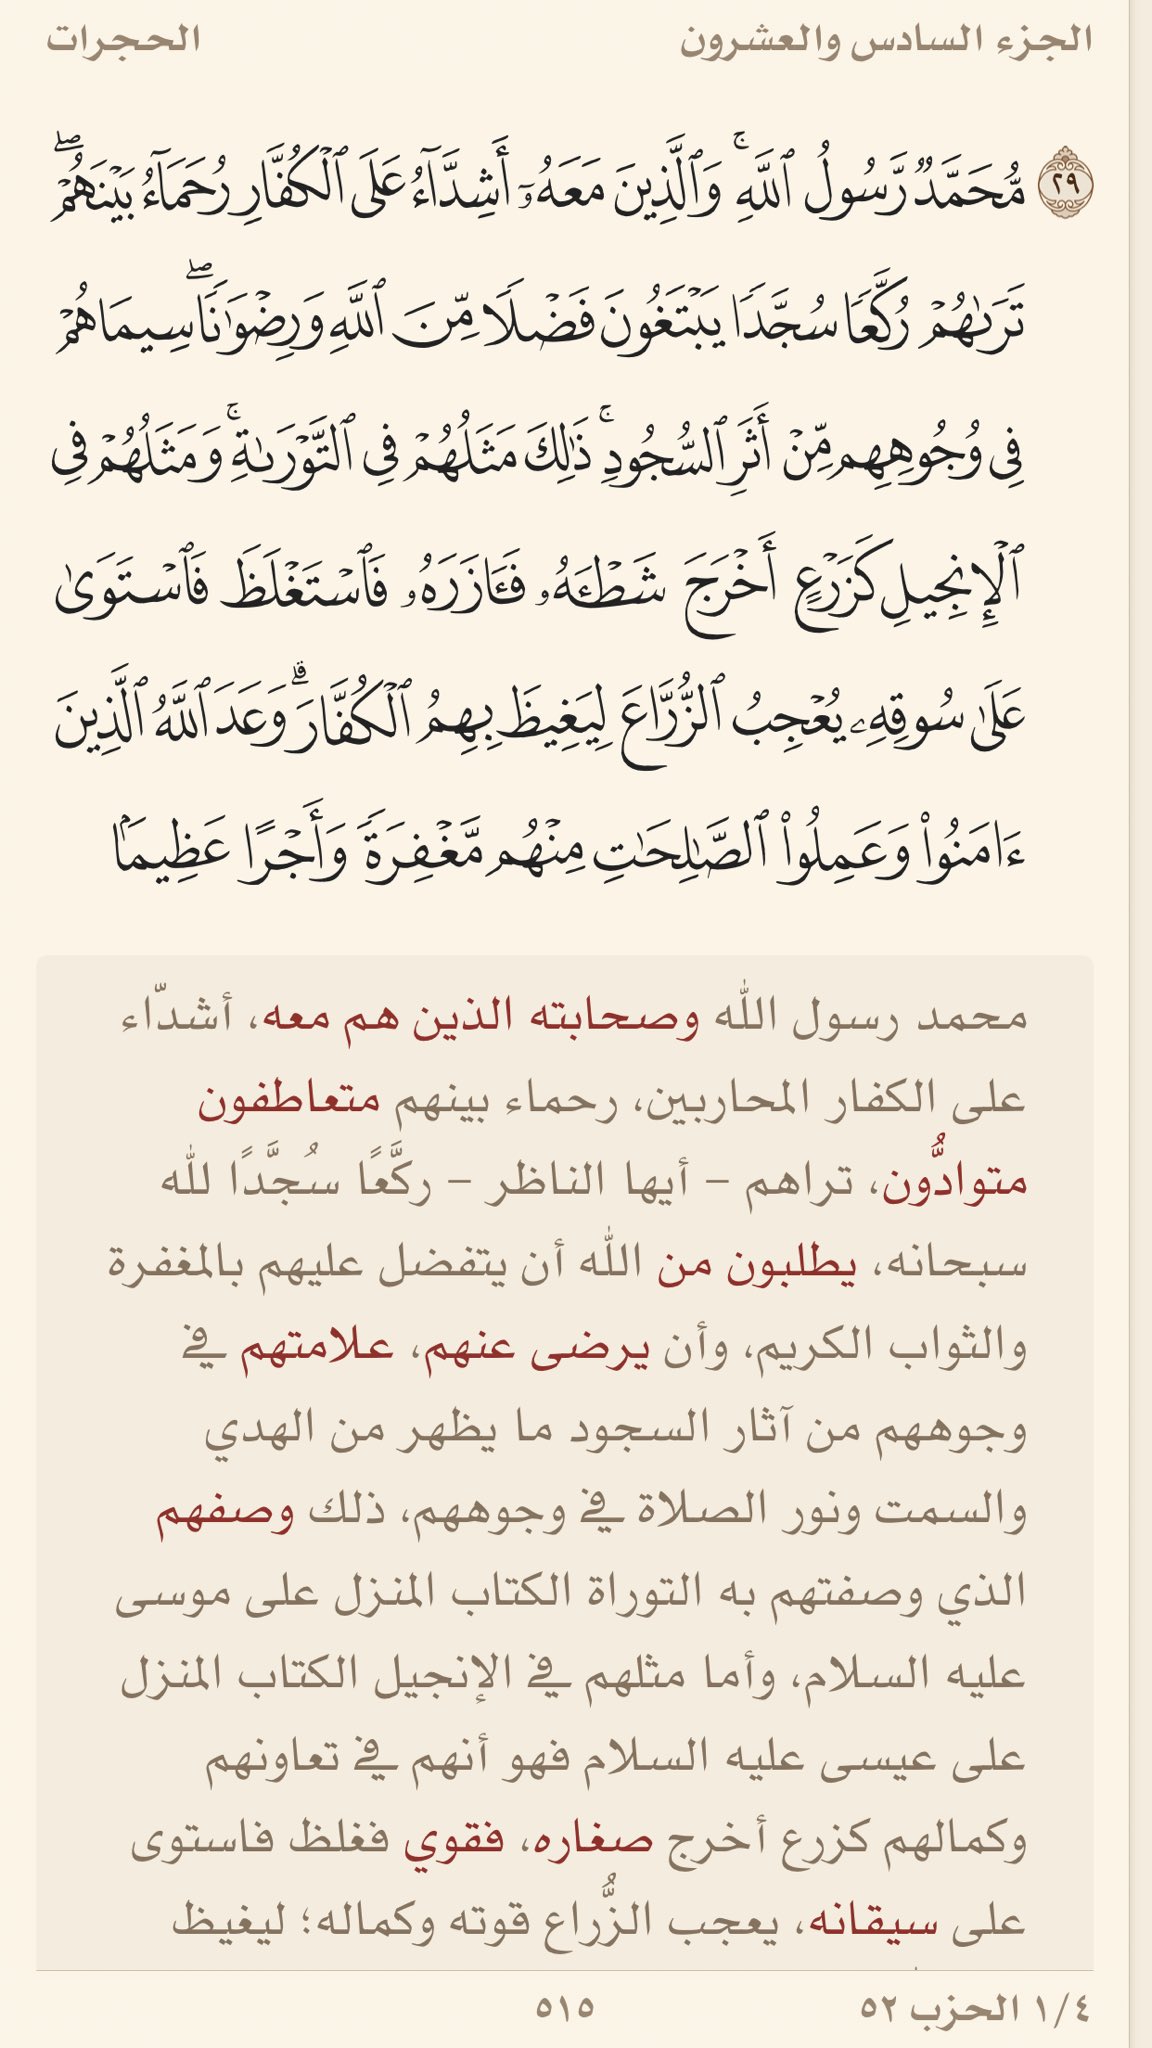 الجزء السادس والعشرون
الحجرات
٢٩ مُّحَمَّدٌ رَّسُولُ ٱللَّهِۚ وَٱلَّذِينَ مَعَهُۥٓ أَشِدَّآءُ عَلَى ٱلْكُفَّارِ رُحَمَآءُ بَيْنَهُمْۖ
تَرَىٰهُمْ رُكَّعًا سُجَّدًا يَبْتَغُونَ فَضْلًا مِّنَ ٱللَّهِ وَرِضْوَٰنًاۖ سِيمَاهُمْ
فِى وُجُوهِهِم مِّنْ أَثَرِ ٱلسُّجُودِۚ ذَٰلِكَ مَثَلُهُمْ فِى ٱلتَّوْرَىٰةِۚ وَمَثَلُهُمْ فِى
ٱلْإِنجِيلِ كَزَرْعٍ أَخْرَجَ شَطْـَٔهُۥ فَـَٔازَرَهُۥ فَٱسْتَغْلَظَ فَٱسْتَوَىٰ
عَلَىٰ سُوقِهِۦ يُعْجِبُ ٱلزُّرَّاعَ لِيَغِيظَ بِهِمُ ٱلْكُفَّارَۗ وَعَدَ ٱللَّهُ ٱلَّذِينَ
ءَامَنُوا۟ وَعَمِلُوا۟ ٱلصَّـٰلِحَـٰتِ مِنْهُم مَّغْفِرَةً وَأَجْرًا عَظِيمًۢا
محمد رسول الله وصحابته الذين هم معه، أشدّاء
على الكفار المحاربين، رحماء بينهم متعاطفون
متوادُّون، تراهم – أيها الناظر – ركَّعًا سُجَّدًا لله
سبحانه، يطلبون من الله أن يتفضل عليهم بالمغفرة
والثواب الكريم، وأن يرضى عنهم، علامتهم في
وجوههم من آثار السجود ما يظهر من الهدي
والسمت ونور الصلاة في وجوههم، ذلك وصفهم
الذي وصفتهم به التوراة الكتاب المنزل على موسى
عليه السلام، وأما مثلهم في الإنجيل الكتاب المنزل
على عيسى عليه السلام فهو أنهم في تعاونهم
وكمالهم كزرع أخرج صغاره، فقوي فغلظ فاستوى
على سيقانه، يعجب الزُّراع قوته وكماله؛ ليغيظ
١/٤ الحزب ٥٢
٥١٥